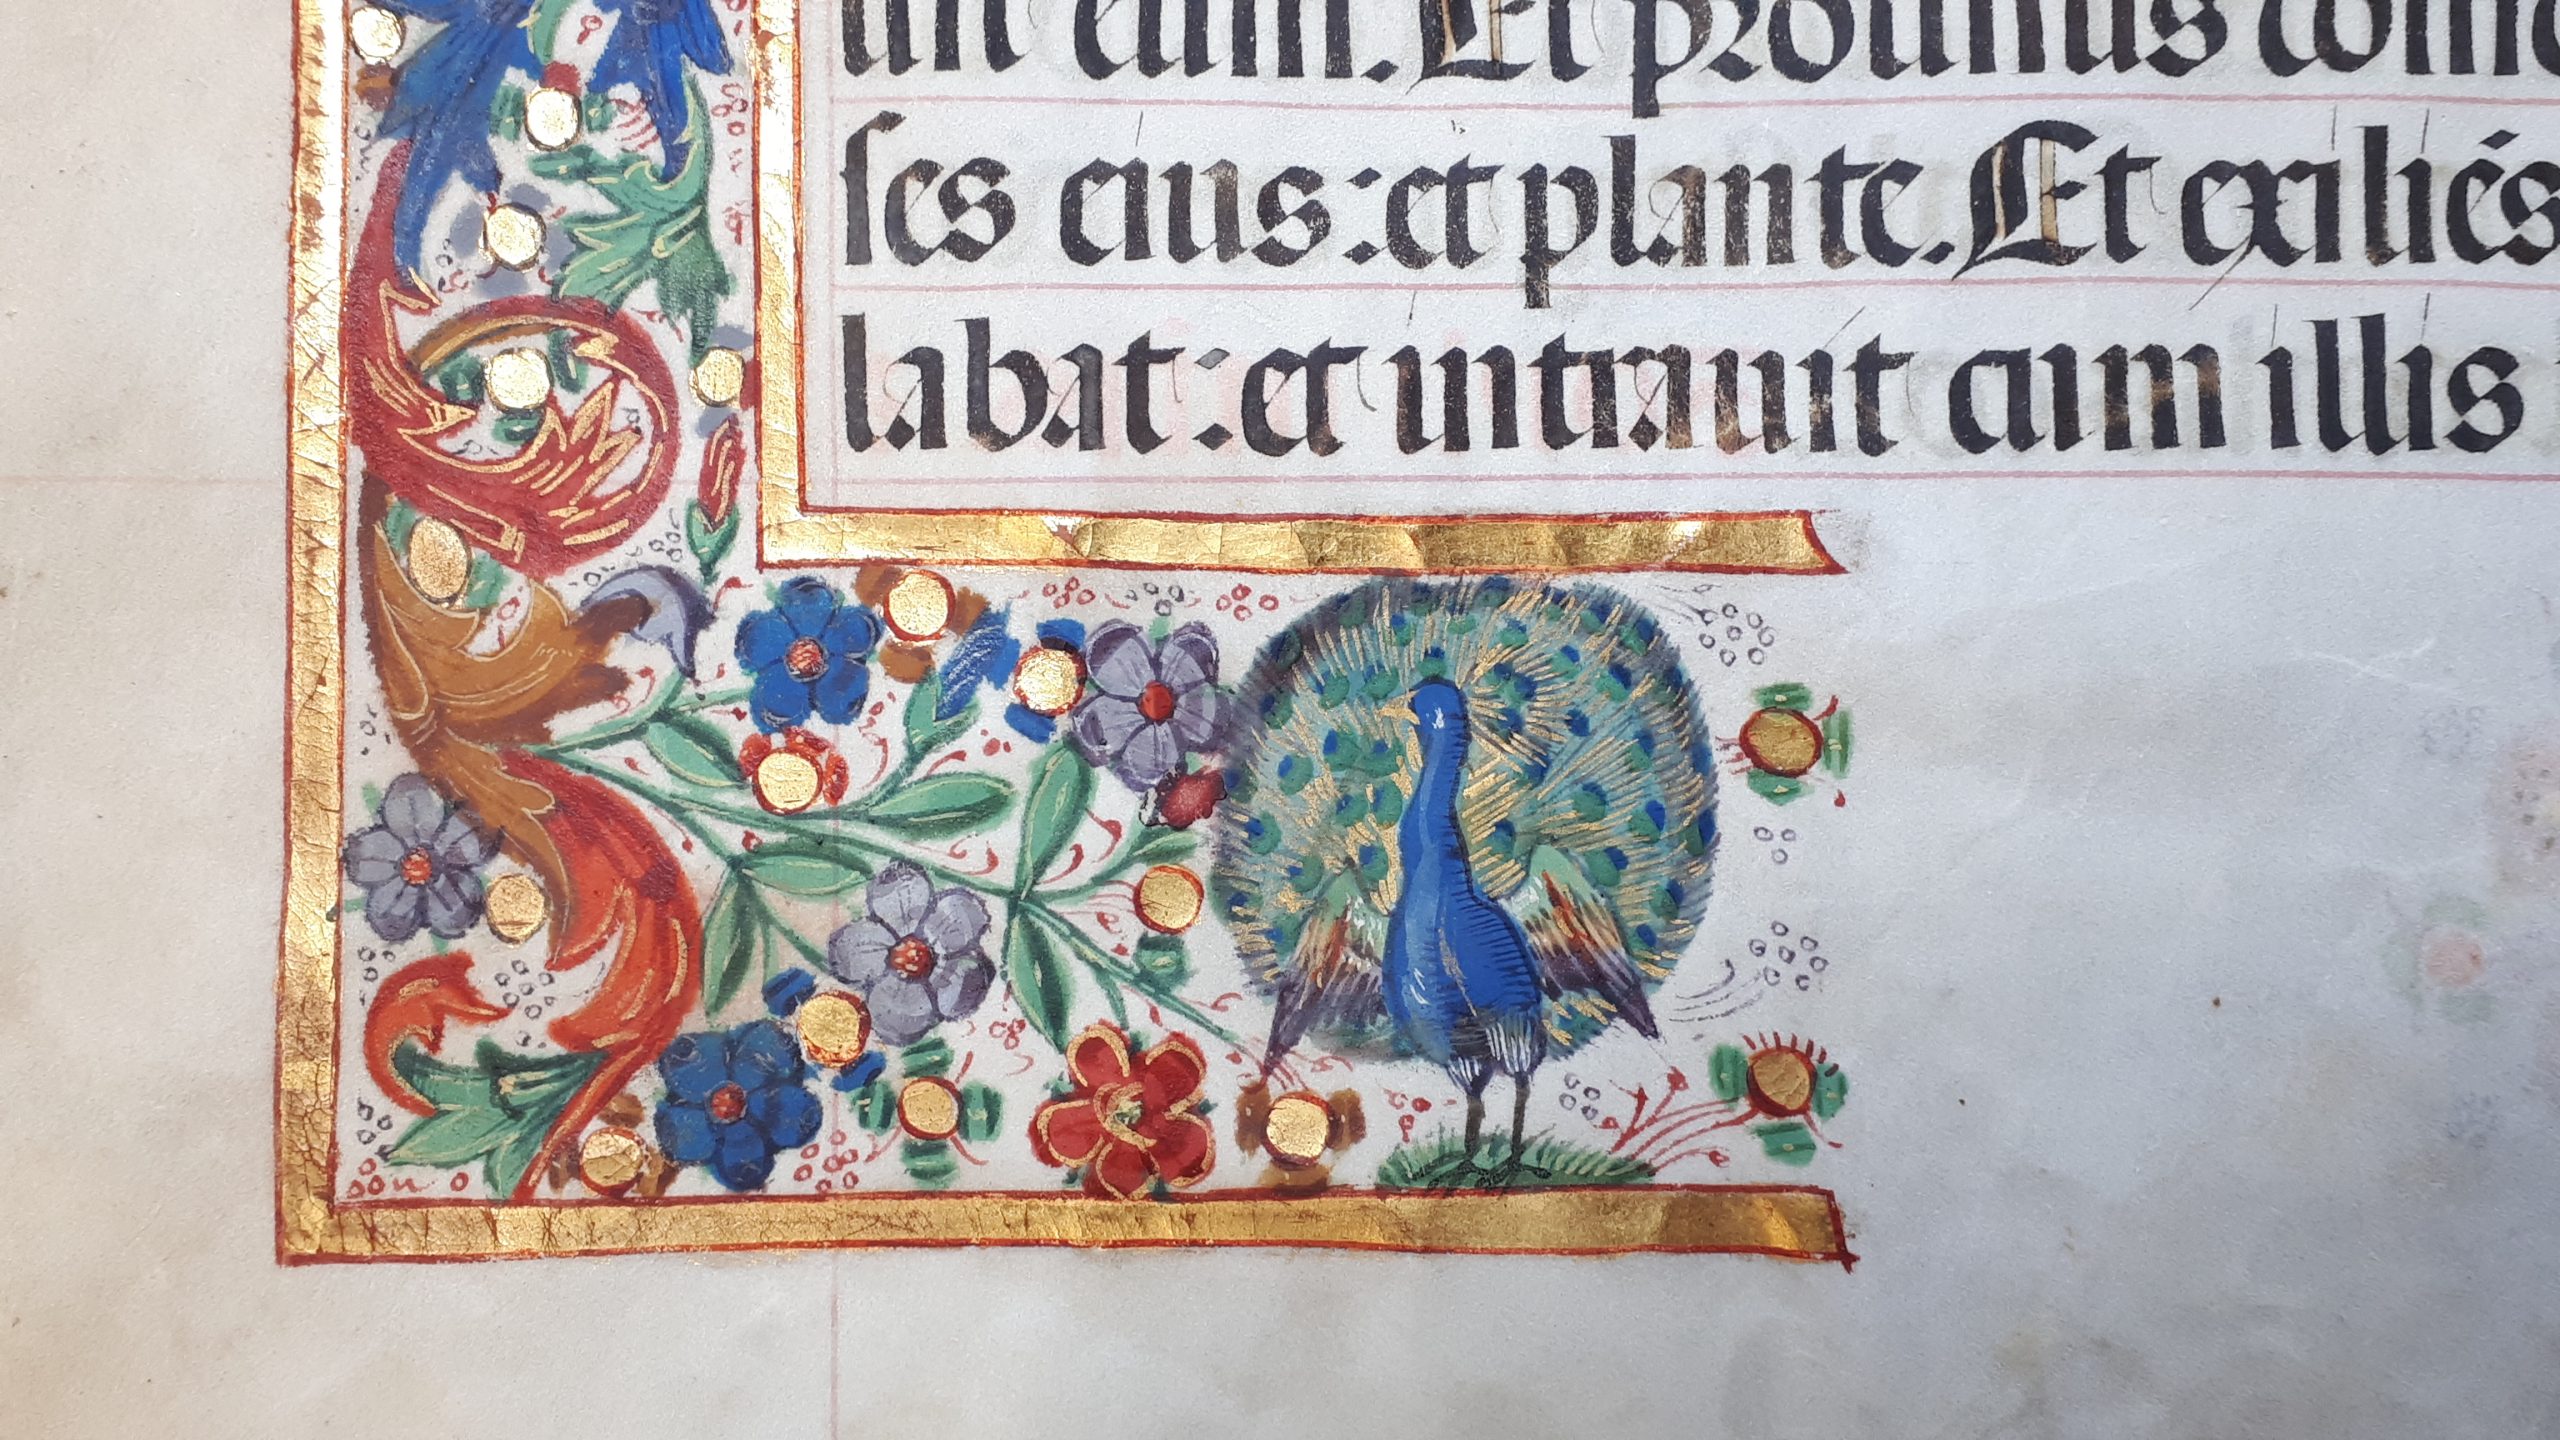 eum. Et protinus
ſes eius: et plante. Et exiliés
labat: et intrauit cum illis